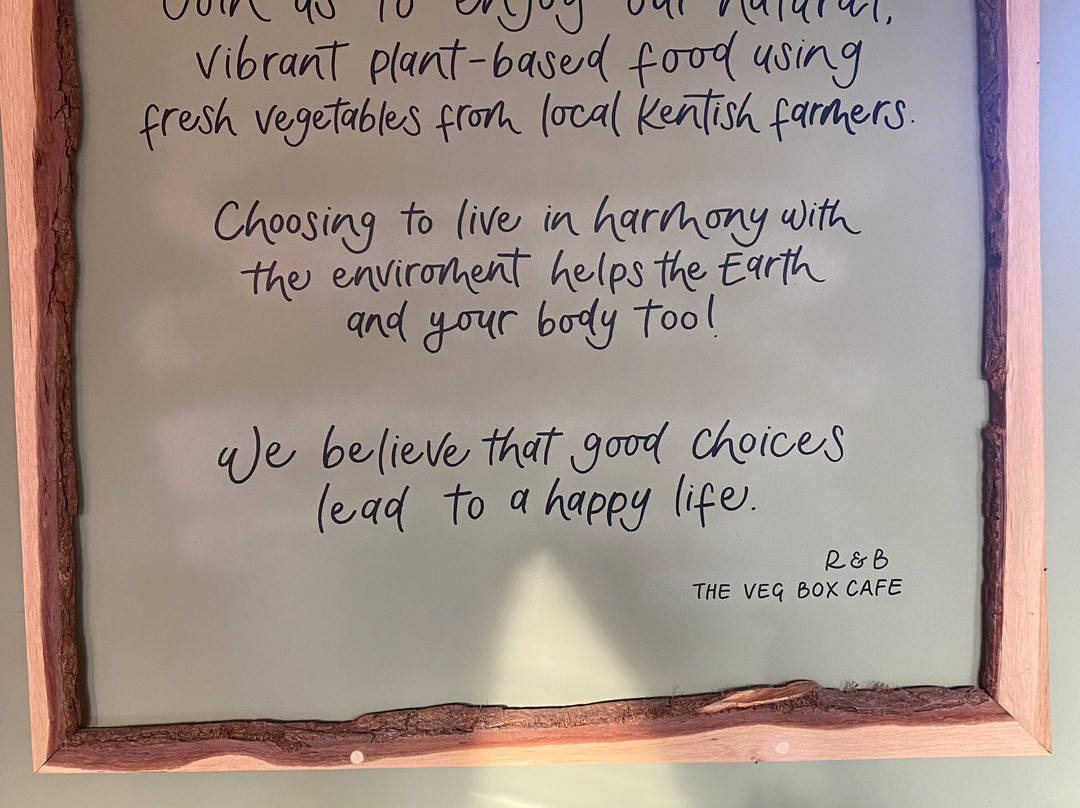 Join us to enjoy our natural,
vibrant plant-based food using
fresh vegetables from local Kentish farmers.
Choosing to live in harmony with
the enviroment helps the Earth
and your body too!
We believe that good choices
lead to a happy life.
R & B
THE VEG BOX CAFE